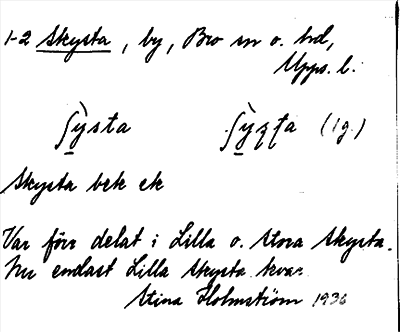 1-2 Skysta, by, Bro sn o. hd,
Upps. l.
ʃỳ̱sta ʃỳ̱ʂʈa (lg.)
Skysta bek ek
Var förr delat i Lilla o. Stora Skysta.
Nu endast Lilla Skysta kvar
Stina Holmström 1936